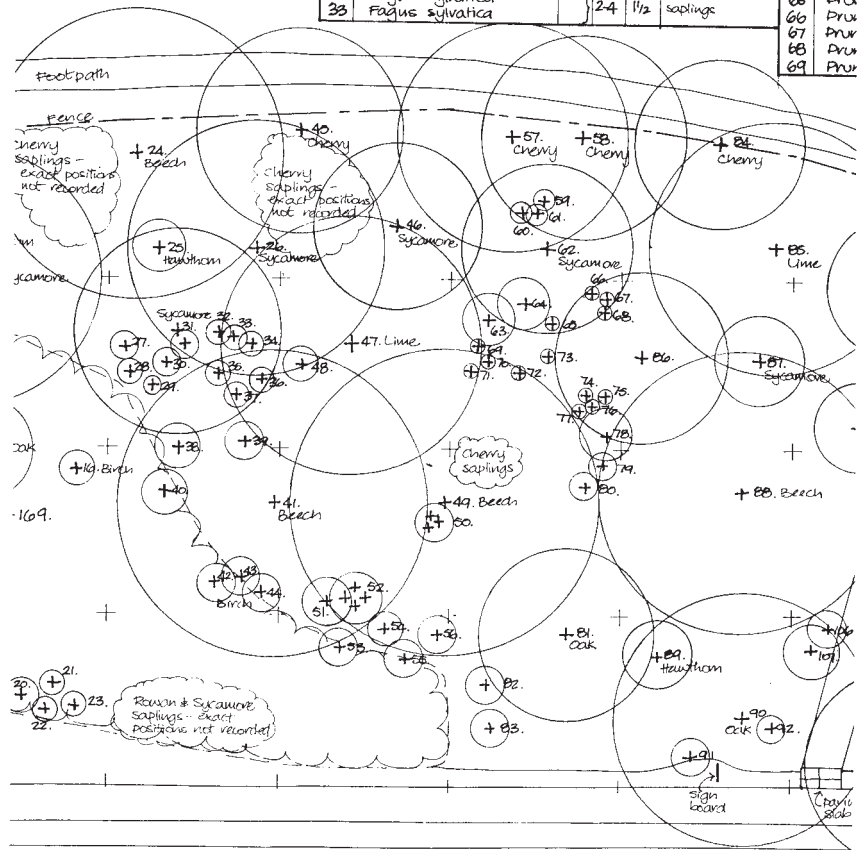 33 Fagus sylvatica 2-4 1½ saplings
66 Prun
67 Prun
68 Prun
69 Prun
Footpath
Fence
Cherry
saplings -
exact positions
not recorded
24.
Beech
45.
Cherry
Cherry
saplings -
exact positions
not recorded
57.
Cherry
58.
Cherry
84.
Cherry
59.
60.
61.
46.
Sycamore
25
Hawthorn
26.
Sycamore
62.
Sycamore
85.
Lime
ycamore
66.
67.
68.
64.
65.
63.
Sycamore
31.
32.
33.
34.
27.
28.
29.
30.
35.
36.
37.
47. Lime
48.
69.
70.
71.
72.
73.
86.
87.
Sycamore
74.
75.
76.
77.
78.
79.
80.
38.
39.
40.
oak
16. Birch
Cherry
saplings
169.
41.
Beech
49. Beech
50.
88. Beech
42.
43.
44.
Birch
51.
52.
53.
54.
55.
56.
81.
Oak
82.
83.
89.
Hawthorn
106
107.
20.
21.
22.
23.
Rowan & Sycamore
saplings - exact
positions not recorded
90
Oak
92.
91
sign
board
pavin
slab